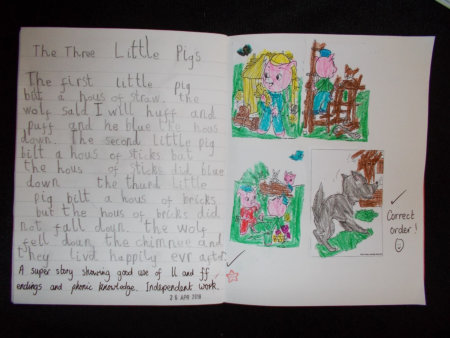 The Three Little Pigs
The first little pig
bilt a hous of straw. the
wolf said I will huff and
puff and he blue the hous
down. The second little pig
bilt a hous of sticks bat
the hous of sticks did blue
down the thurd little
pig bilt a hous of bricks
but the hous of bricks did
not fall down. the wolf
fell down the chimnue and
they livd happily evr aftr.
A super story showing good use of ll and ff
endings and phonic knowledge. Independent work.
26 APR 2016
Correct
order!